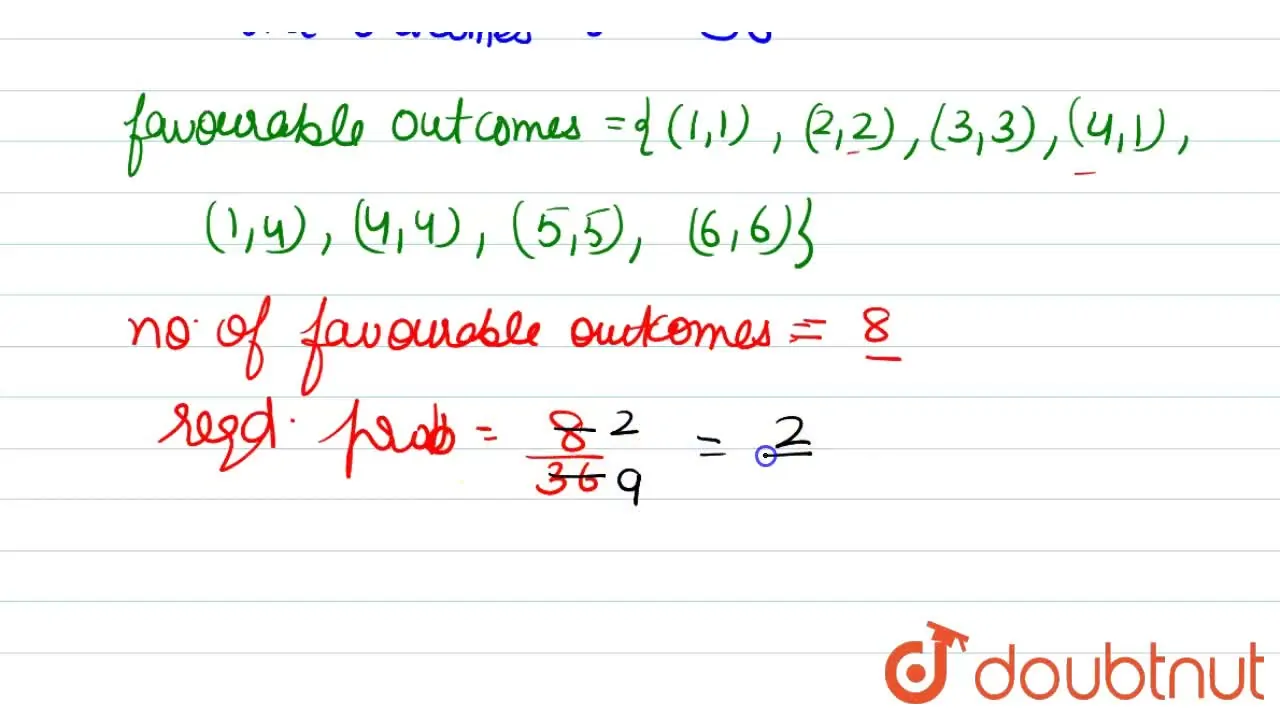 outcomes
favourable outcomes = { (1,1) , (2,2) , (3,3) , (4,1) ,
(1,4) , (4,4) , (5,5) , (6,6) }
no. of favourable outcomes = 8
reqd. prob = 8/36 2/9 = 2
doubtnut